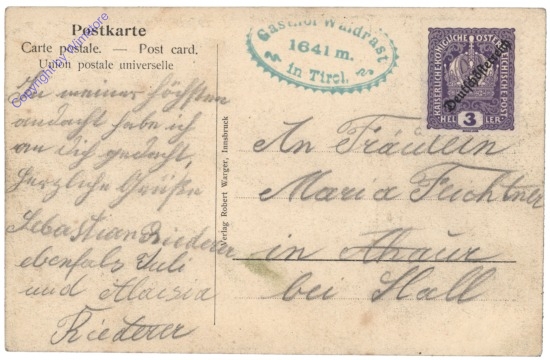 Postkarte
Carte postale. — Post card.
Union postale universelle
Gasthof Waldrast
1641 m.
in Tirol.
KAISERLICHE KÖNIGLICHE ÖSTERREICHISCHE POST
Deutschösterreich
3
HELLER
In meiner höchsten
andacht habe ich
an dich gedacht,
herzliche Grüße
Sebastian Riederer
ebenfals Juli
und Aloisia
Riederer
Verlag Robert Warger, Innsbruck
An Fräulein
Maria Feichtner
in
bei Hall